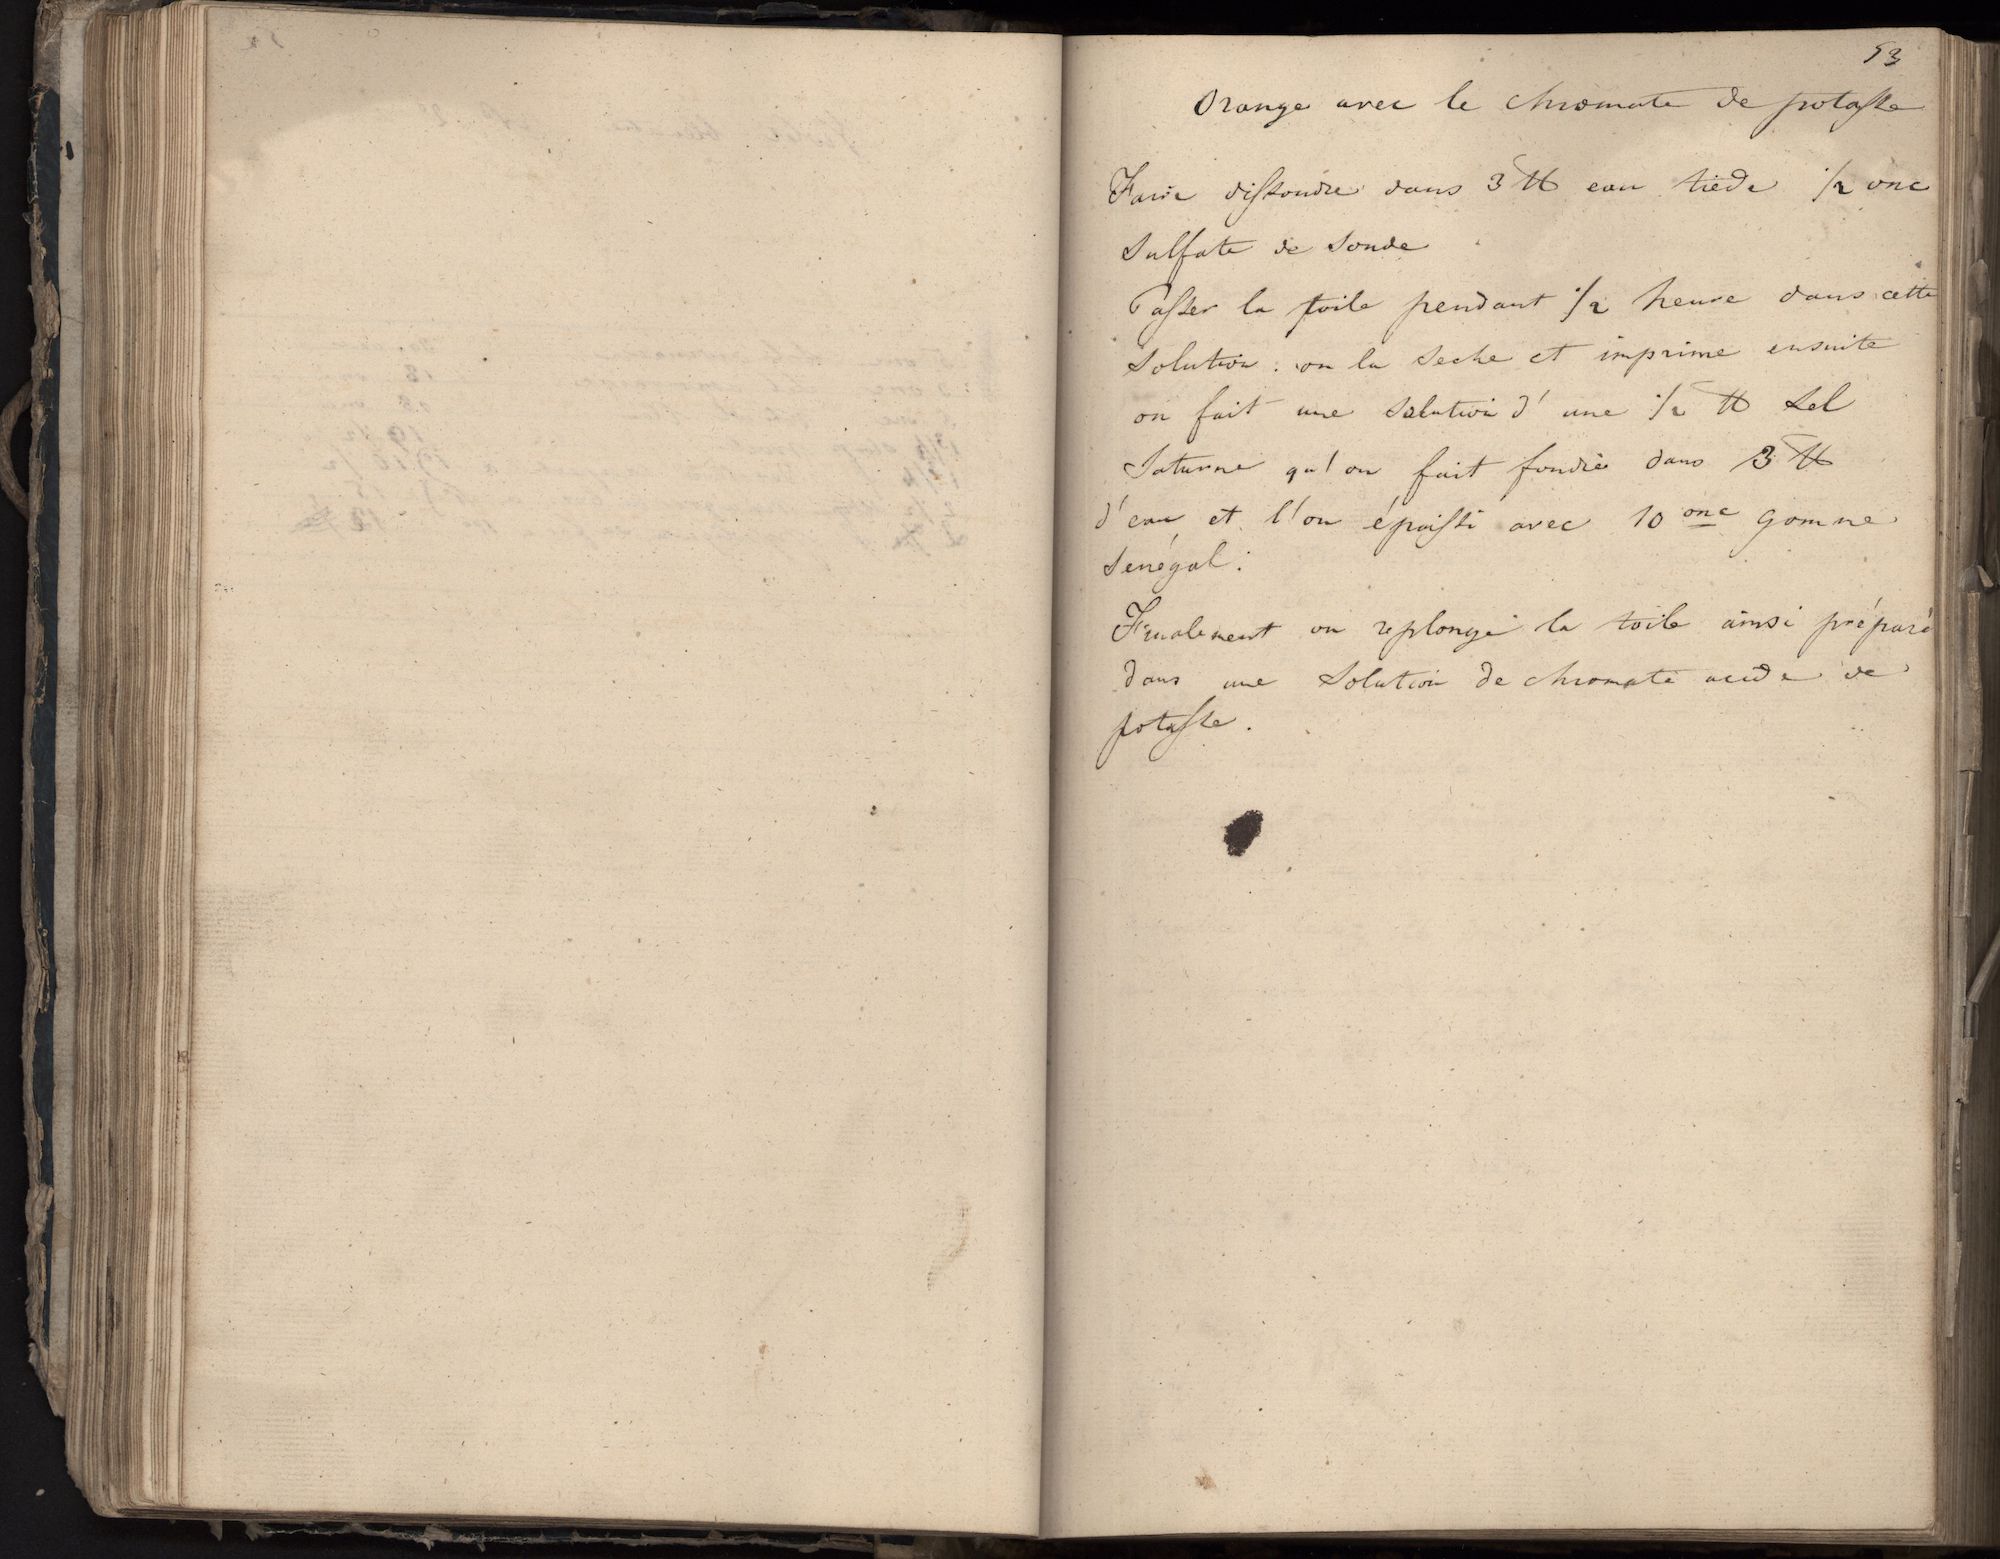 53
Orange avec le chromate de potasse
Faire dissoudre dans 3 ℔ eau tiède 1/2 onc
Sulfate de Soude
Passer la toile pendant 1/2 heure dans cette
solution : on la seche et imprime ensuite
on fait une solution d'une 1/2 ℔ Sel
Saturne qu'on fait fondre dans 3 ℔
d'eau et l'on épaissi avec 10 onc gomme
Senégal.
Finalement on replonge la toile ainsi préparé
dans une Solution de chromate acide de
potasse.